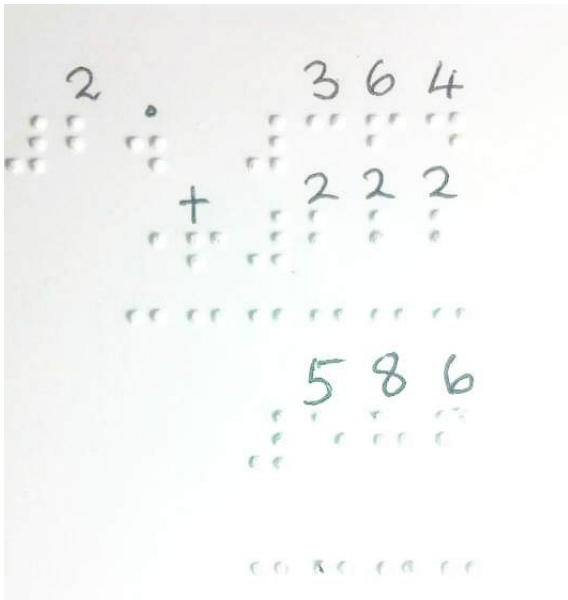 2. 364
+ 222
586